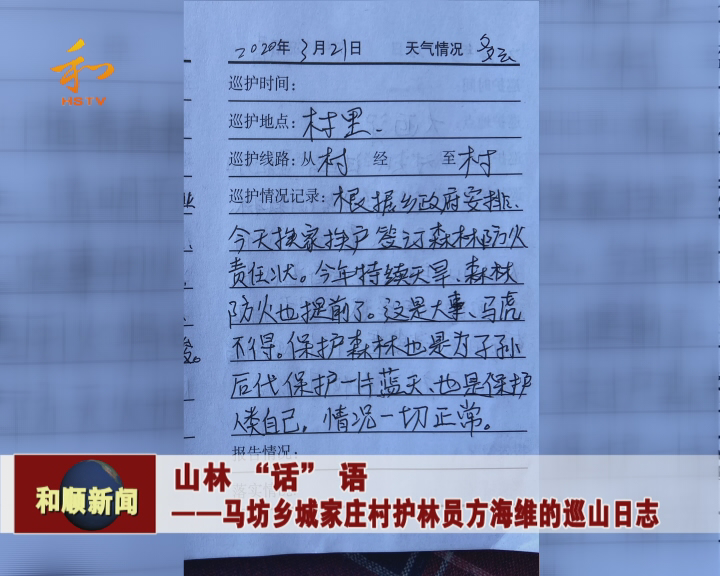 和
HSTV
2020年 3月21日 天气情况 多云
巡护时间：
巡护地点：村里.
巡护线路：从村 经 至村
巡护情况记录：根据乡政府安排、
今天挨家挨户签订森林防火
责任状。今年持续天旱、森林
防火也提前了。这是大事、马虎
不得。保护森林也是为子孙
后代保护一片蓝天、也是保护
人类自己，情况一切正常。
报告情况：
和顺新闻
山林 “话” 语
——马坊乡城家庄村护林员方海维的巡山日志